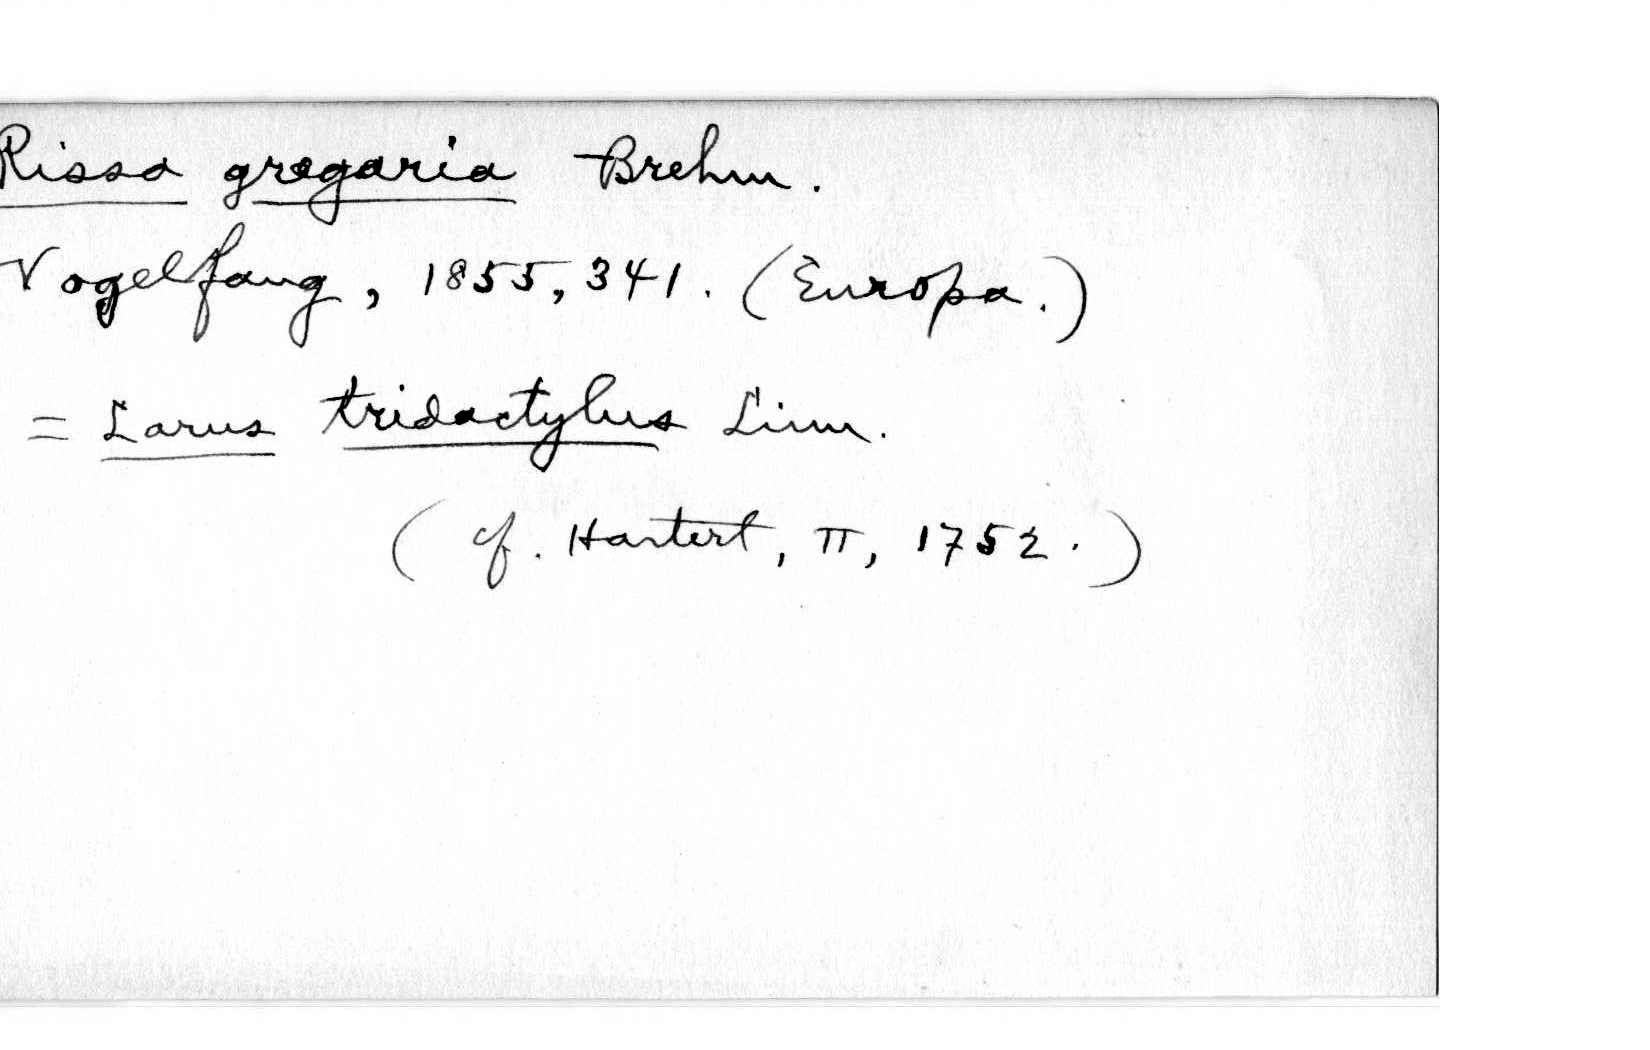 Rissa gregaria Brehm.
Vogelfang, 1855, 341. (Europa.)
= Larus tridactylus Linn.
(cf. Hartert, II, 1752.)